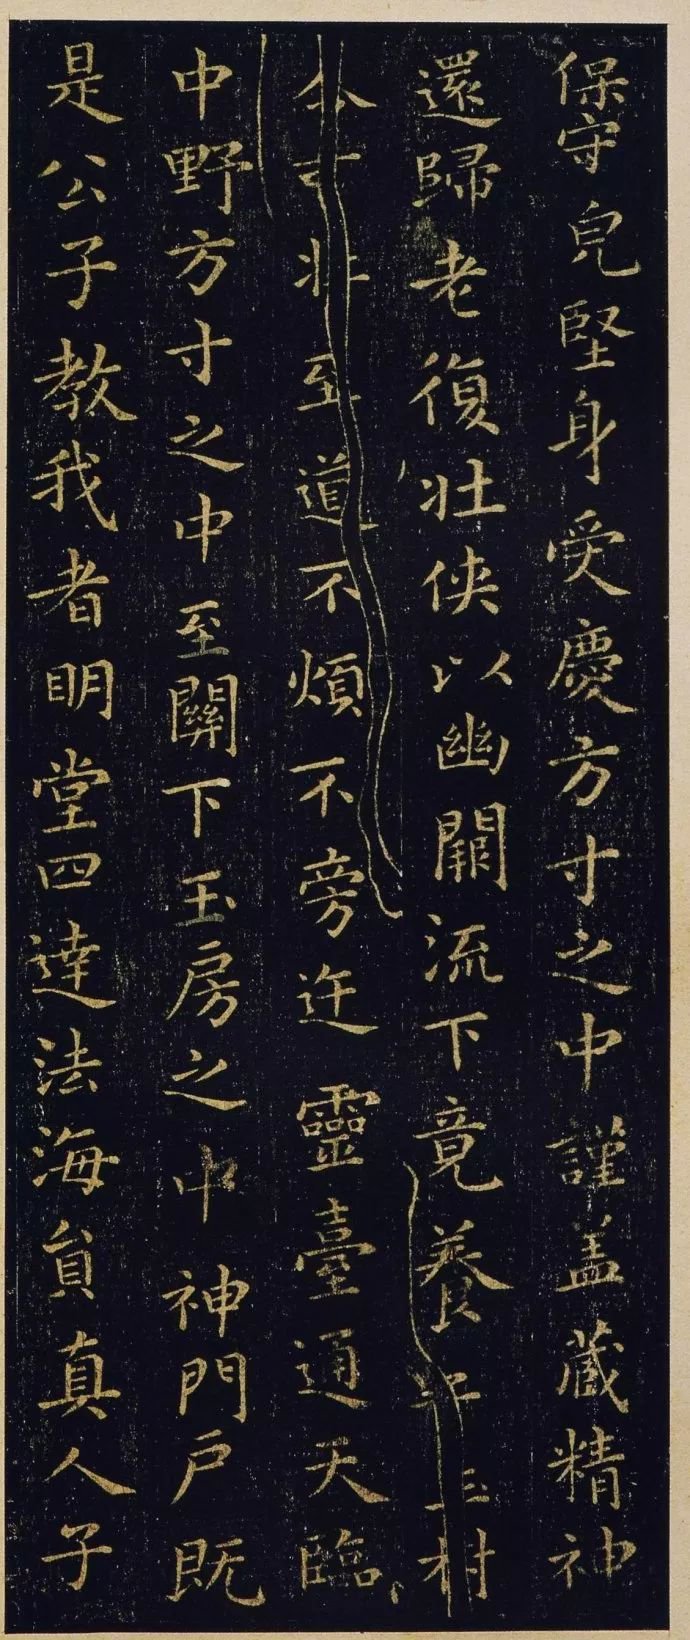 保守皃堅身受慶方寸之中謹盖藏精神
還歸老復壯俠以幽闕流下竟養玉樹
不可壯至道不煩不旁迕靈臺通天臨
中野方寸之中至關下玉房之中神門戶既
是公子教我者明堂四達法海員真人子